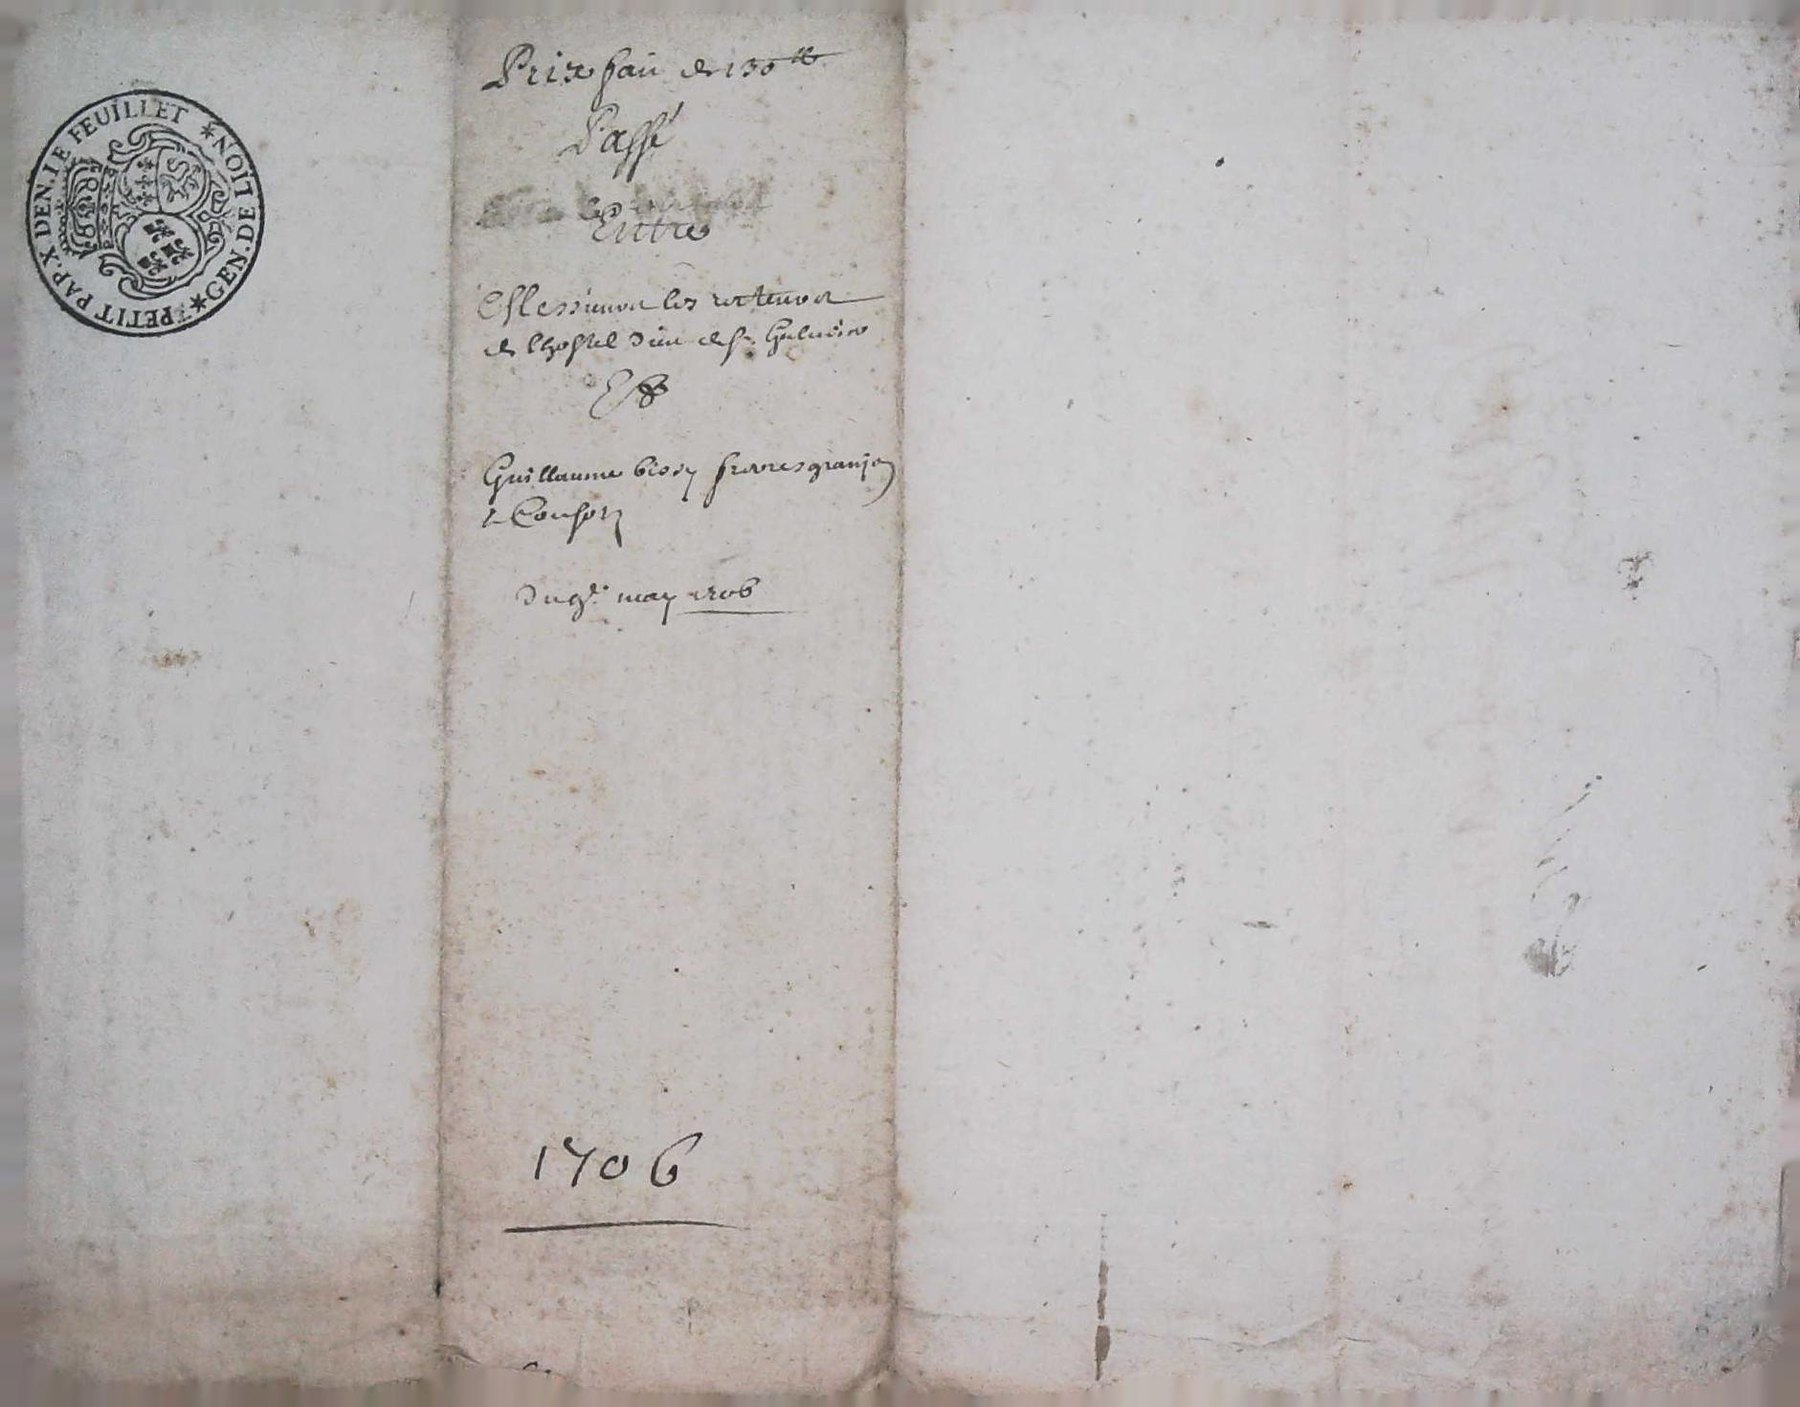 PETIT PAP. X DEN. LE FEUILLET * NOIT E DE * GEN. DE
Prix fait de 130 ᵗᵗ
Passé
Entre
Messieurs les recteurs
de lhostel dieu de St
Et
Guillaume freres granjon
& Consors
Du 9e. may 1706
1706